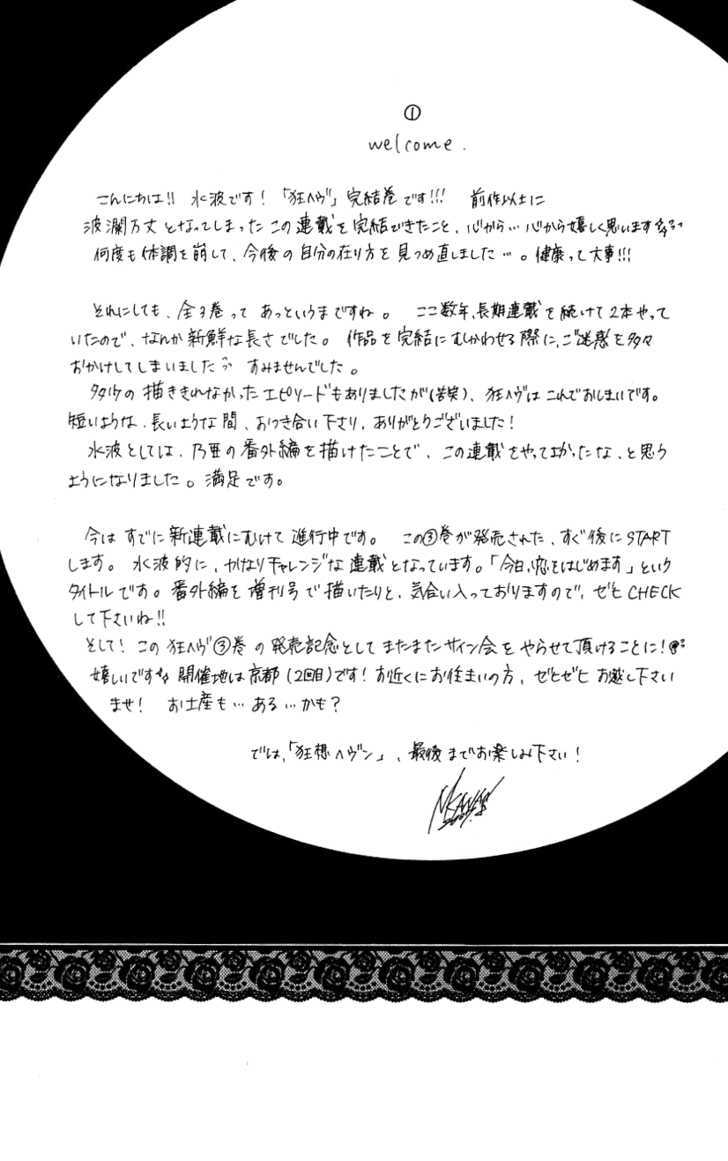 ①
welcome.
こんにちは!! 水波です!「狂ヘヴ」完結巻です!!! 前作以上に
波瀾万丈となってしまったこの連載を完結できたこと、心から…心から嬉しく思います
何度も体調を崩して、今後の自分の在り方を見つめ直しました…。健康って大事!!!
それにしても、全3巻ってあっというまですね。ここ数年、長期連載を続けて2本やって
いたので、なんか新鮮な長さでした。作品を完結にむかわせる際に、ご迷惑を多々
おかけしてしまいました すみませんでした。
多少の描ききれなかったエピソードもありましたが(苦笑)、狂ヘヴはこれでおしまいです。
短いような、長いような間、おつき合い下さり、ありがとうございました!
水波としては、乃亜の番外編を描けたことで、この連載をやってよかったな、と思う
ようになりました。満足です。
今はすでに新連載にむけて進行中です。この③巻が発売された、すぐ後にSTART
します。水波的に、かなりチャレンジな連載となっています。「今日、恋をはじめます」という
タイトルです。番外編を増刊号で描いたりと、気合い入っておりますので、ぜひCHECK
して下さいね!!
そして!この狂ヘヴ③巻の発売記念としてまたまたサイン会をやらせて頂けることに!
嬉しいです 開催地は京都(2回目)です!お近くにお住まいの方、ぜひぜひお越し下さい
ませ! お土産も…ある…かも?
では、「狂想ヘヴン」、最後までお楽しみ下さい!